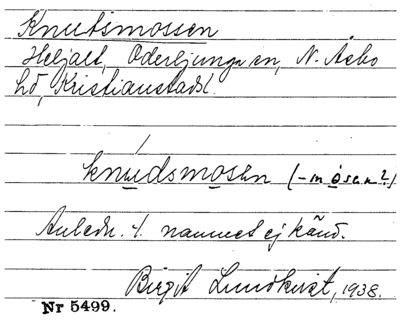 Knutsmossen
Heljalt, Oderljunga sn, N. Åsbo
hd, Kristianstads l.
knudsmosen (-mosen?)
Anledn. t. namnet ej känd.
Birgit Lundkvist, 1938.
Nr 5499.